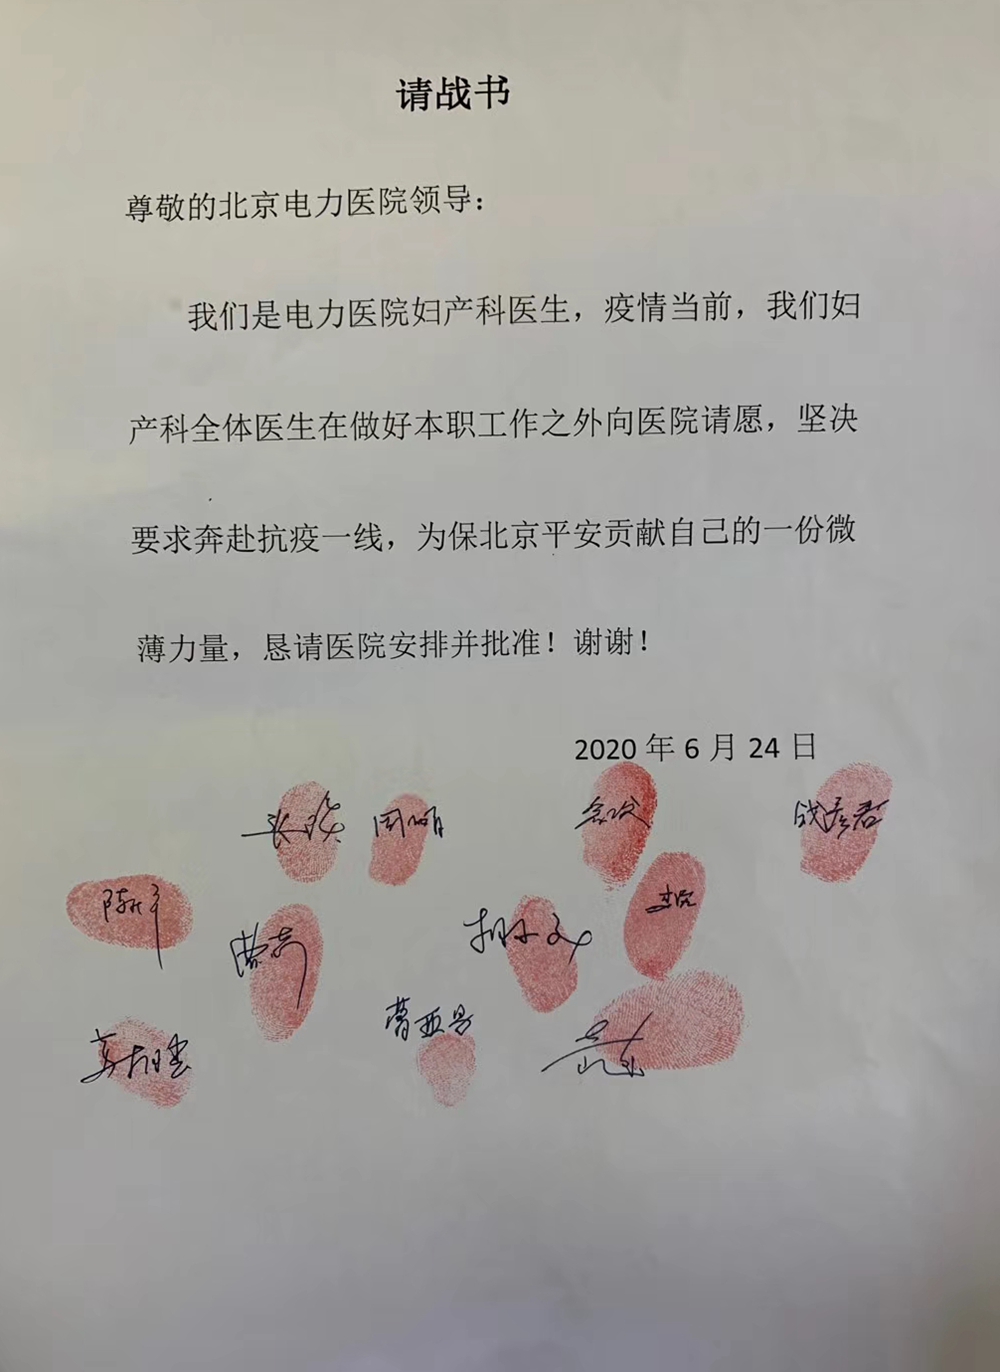 请战书
尊敬的北京电力医院领导：
我们是电力医院妇产科医生，疫情当前，我们妇
产科全体医生在做好本职工作之外向医院请愿，坚决
要求奔赴抗疫一线，为保北京平安贡献自己的一份微
薄力量，恳请医院安排并批准！谢谢！
2020 年 6 月 24 日